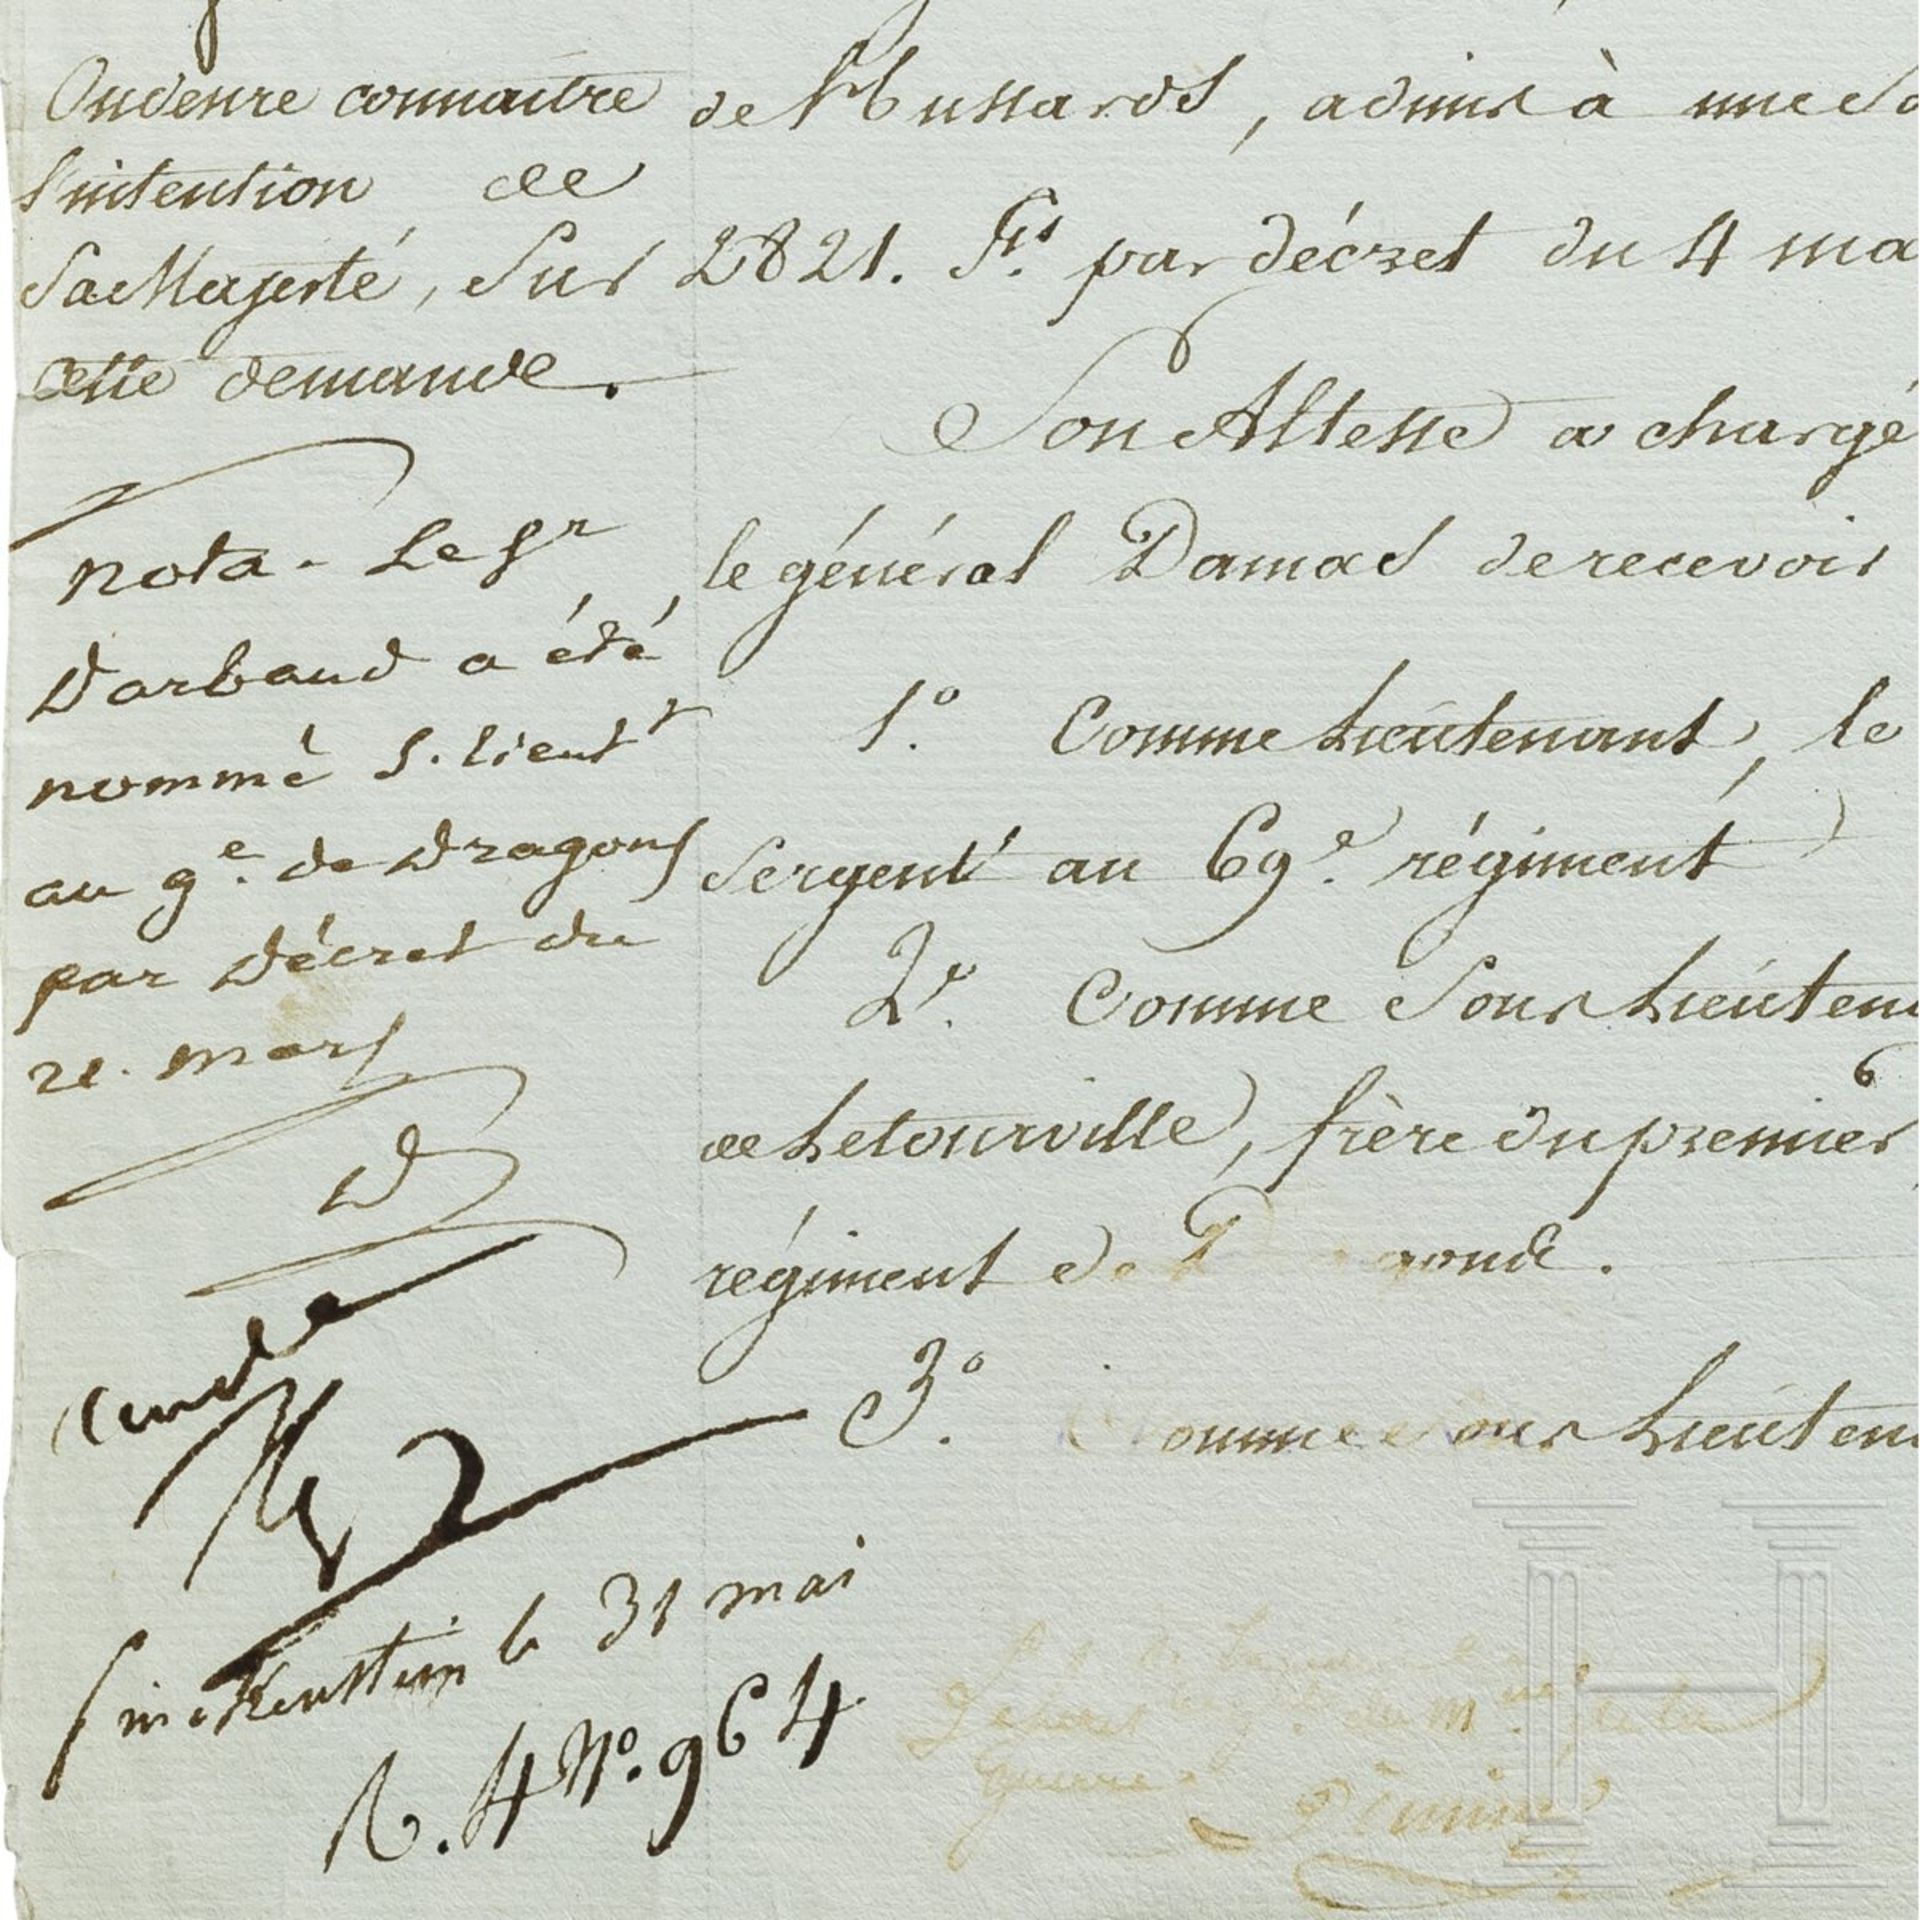 On désire connaître
l'intention de
Sa Majesté, Sur
cette demande.
nota - Le Sr
Darbaud a été
nommé S. lieutt
au 9e. de Dragons
par Décret du
21. mars
D
31 mai
N.º 964
de Hussards, admis à une So
2821. Fs. par décret du 4 ma
Son Altesse a chargé
le général Damas de recevoir
1º. Comme Lieutenant, le
Sergent au 69e. régiment
2º. Comme Sous Lieutena
6
de Letourville, frère du premier
régiment de D gons.
3º. omme ous Lieutena